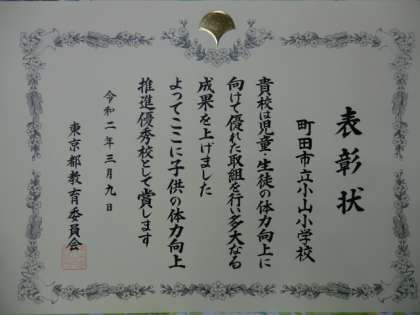 表彰状
町田市立小山小学校
貴校は児童・生徒の体力向上に
向けて優れた取組を行い多大なる
成果を上げました
よってここに子供の体力向上
推進優秀校として賞します
令和二年三月九日
東京都教育委員会